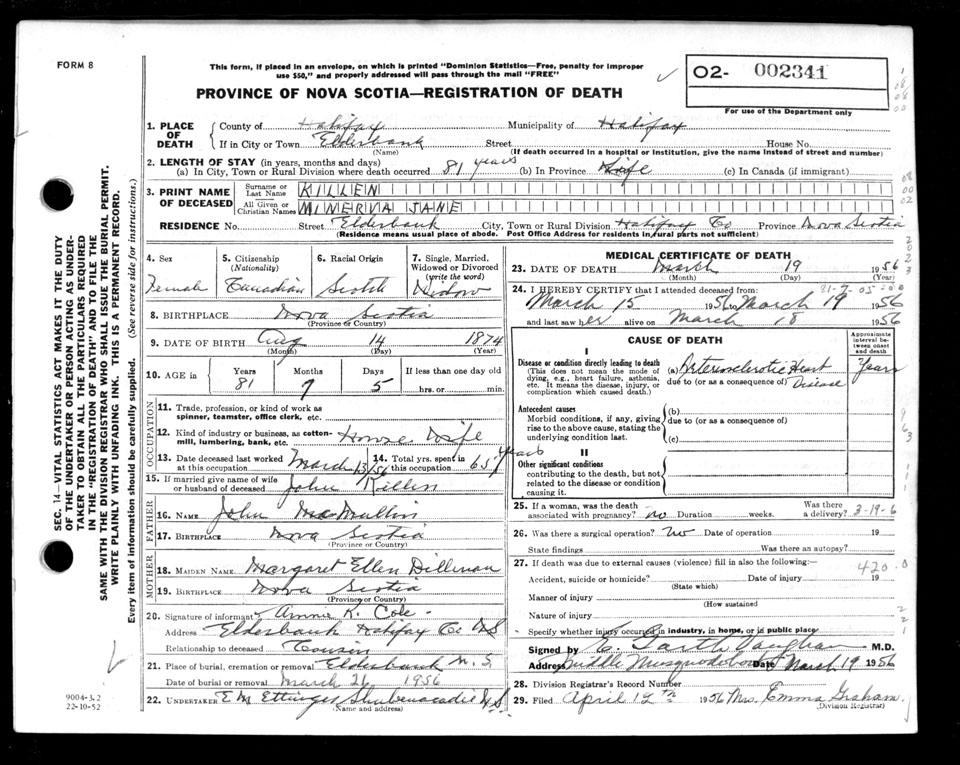 FORM 8
This form, if placed in an envelope, on which is printed "Dominion Statistics—Free, penalty for improper
use $50," and properly addressed will pass through the mail "FREE"
PROVINCE OF NOVA SCOTIA—REGISTRATION OF DEATH
02- 002341
For use of the Department only
1. PLACE OF DEATH
County of Halifax Municipality of Halifax
If in City or Town Elderbank Street House No.
(Name) (If death occurred in a hospital or institution, give the name instead of street and number)
2. LENGTH OF STAY (in years, months and days)
(a) In City, Town or Rural Division where death occurred 81 years (b) In Province Life (c) In Canada (if immigrant)
3. PRINT NAME OF DECEASED
Surname or Last Name KILLEN
All Given or Christian Names MINERVA JANE
RESIDENCE No. Street Elderbank City, Town or Rural Division Halifax Co Province Nova Scotia
(Residence means usual place of abode. Post Office Address for residents in rural parts not sufficient)
4. Sex
Female
5. Citizenship
(Nationality)
Canadian
6. Racial Origin
Scotch
7. Single, Married,
Widowed or Divorced
(write the word)
Widow
8. BIRTHPLACE Nova Scotia
(Province or Country)
9. DATE OF BIRTH Aug 14 1874
(Month) (Day) (Year)
10. AGE in Years Months Days If less than one day old
81 7 5 hrs. or min.
OCCUPATION
11. Trade, profession, or kind of work as
spinner, teamster, office clerk, etc.
12. Kind of industry or business, as cotton-
mill, lumbering, bank, etc. House Wife
13. Date deceased last worked
at this occupation March 13/56
14. Total yrs. spent in
this occupation 65 years
15. If married give name of wife
or husband of deceased John Killen
FATHER
16. NAME John McMullin
17. BIRTHPLACE Nova Scotia
(Province or Country)
MOTHER
18. MAIDEN NAME Margaret Ellen Dillman
19. BIRTHPLACE Nova Scotia
(Province or Country)
20. Signature of informant Annie K. Cole
Address Elderbank Halifax Co NS
Relationship to deceased Cousin
21. Place of burial, cremation or removal Elderbank N.S.
Date of burial or removal March 26 1956
22. UNDERTAKER E M Ettinger Shubenacadie N.S.
(Name and address)
MEDICAL CERTIFICATE OF DEATH
23. DATE OF DEATH March 19 1956
(Month) (Day) (Year)
24. I HEREBY CERTIFY that I attended deceased from:
March 15 1956 to March 19 1956
and last saw her alive on March 18 1956
CAUSE OF DEATH
Approximate interval between onset and death
I
Disease or condition directly leading to death
(This does not mean the mode of
dying, e.g., heart failure, asthenia,
etc. It means the disease, injury, or
complication which caused death.)
(a) Arteriosclerotic Heart Years
due to (or as a consequence of) Disease
Antecedent causes
Morbid conditions, if any, giving
rise to the above cause, stating the
underlying condition last.
(b)
due to (or as a consequence of)
(c)
II
Other significant conditions
contributing to the death, but not
related to the disease or condition
causing it.
25. If a woman, was the death
associated with pregnancy? no Duration weeks. Was there
a delivery? 3-19-6
26. Was there a surgical operation? No Date of operation 19
State findings Was there an autopsy?
27. If death was due to external causes (violence) fill in also the following: 420.0
Accident, suicide or homicide? Date of injury 19
(State which)
Manner of injury
(How sustained
Nature of injury
Specify whether injury occurred in industry, in home, or in public place
Signed by C. Garth Vaughan M.D.
Address Middle Musquodoboit Date March 19 1956
28. Division Registrar's Record Number
29. Filed April 12th 1956 Mrs. Emma Graham.
(Division Registrar)
SEC. 14—VITAL STATISTICS ACT MAKES IT THE DUTY
OF THE UNDERTAKER OR PERSON ACTING AS UNDER-
TAKER TO OBTAIN ALL THE PARTICULARS REQUIRED
IN THE "REGISTRATION OF DEATH" AND TO FILE THE
SAME WITH THE DIVISION REGISTRAR WHO SHALL ISSUE THE BURIAL PERMIT.
WRITE PLAINLY WITH UNFADING INK. THIS IS A PERMANENT RECORD.
Every item of information should be carefully supplied. (See reverse side for instructions.)
9004-3.2
22-10-52